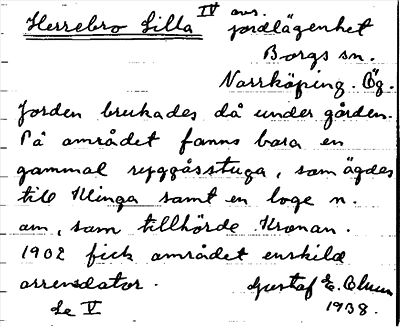 Herrebro Lilla IV avs.
jordlägenhet
Borgs sn.
Norrköping. Ög.
Jorden brukades då under gården.
På området fanns bara en
gammal ryggåsstuga, som ägdes
till Klinga samt en loge n.
om, som tillhörde Kronan.
1902 fick området enskild
arrendator. Gustaf E. Blum
Se V 1938.